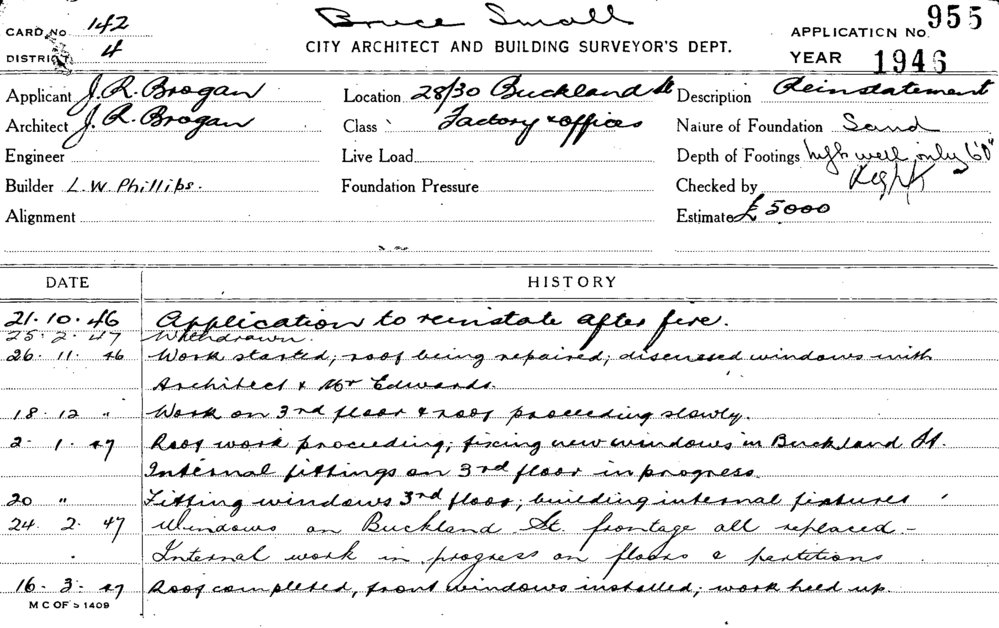 Bruce Small
955
CARD No 142
DISTRICT 4
CITY ARCHITECT AND BUILDING SURVEYOR'S DEPT.
APPLICATION No.
YEAR 1946
Applicant J. R. Brogan
Location 28/30 Buckland St
Description Reinstatement
Architect J. R. Brogan
Class Factory & offices
Nature of Foundation Sand
Engineer
Live Load
Depth of Footings high well only 6'0"
Builder L. W. Phillips.
Foundation Pressure
Checked by
Alignment
Estimate £5000
DATE HISTORY
21. 10. 46 Application to reinstate after fire.
25. 2. 47 Withdrawn.
26. 11. 46 Work started; roof being repaired; discussed windows with
Architect & Mr Edwards.
18. 12 " Work on 3rd floor & roof proceeding slowly.
2. 1. 47 Roof work proceeding; fixing new windows in Buckland St.
Internal fittings on 3rd floor in progress
20 " Fitting windows 3rd floor; building internal fixtures
24. 2. 47 Windows on Buckland St. frontage all replaced -
Internal work in progress on floors & partitions
16. 3. 47 Roof completed, front windows installed; work held up.
M C OF S 1409